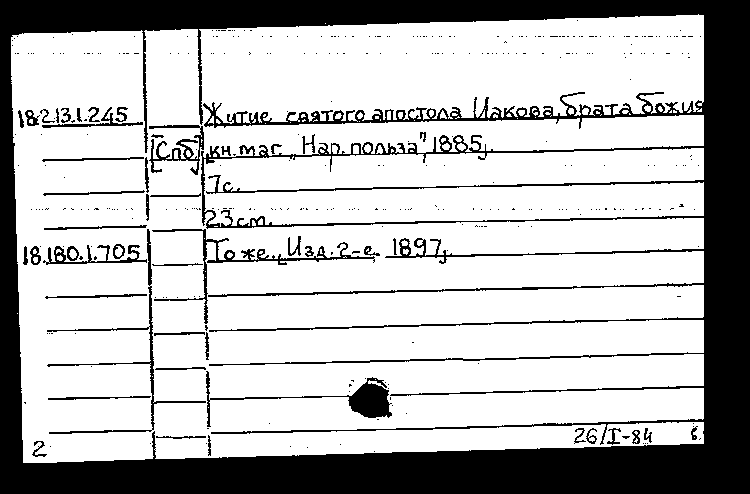 18.213.1.245 Житие святого апостола Иакова, брата божия
[Спб], кн. маг. "Нар. польза", 1885.
7с.
23см.
18.180.1.705 То же., Изд. 2-е. 1897,.
26/I-84
2